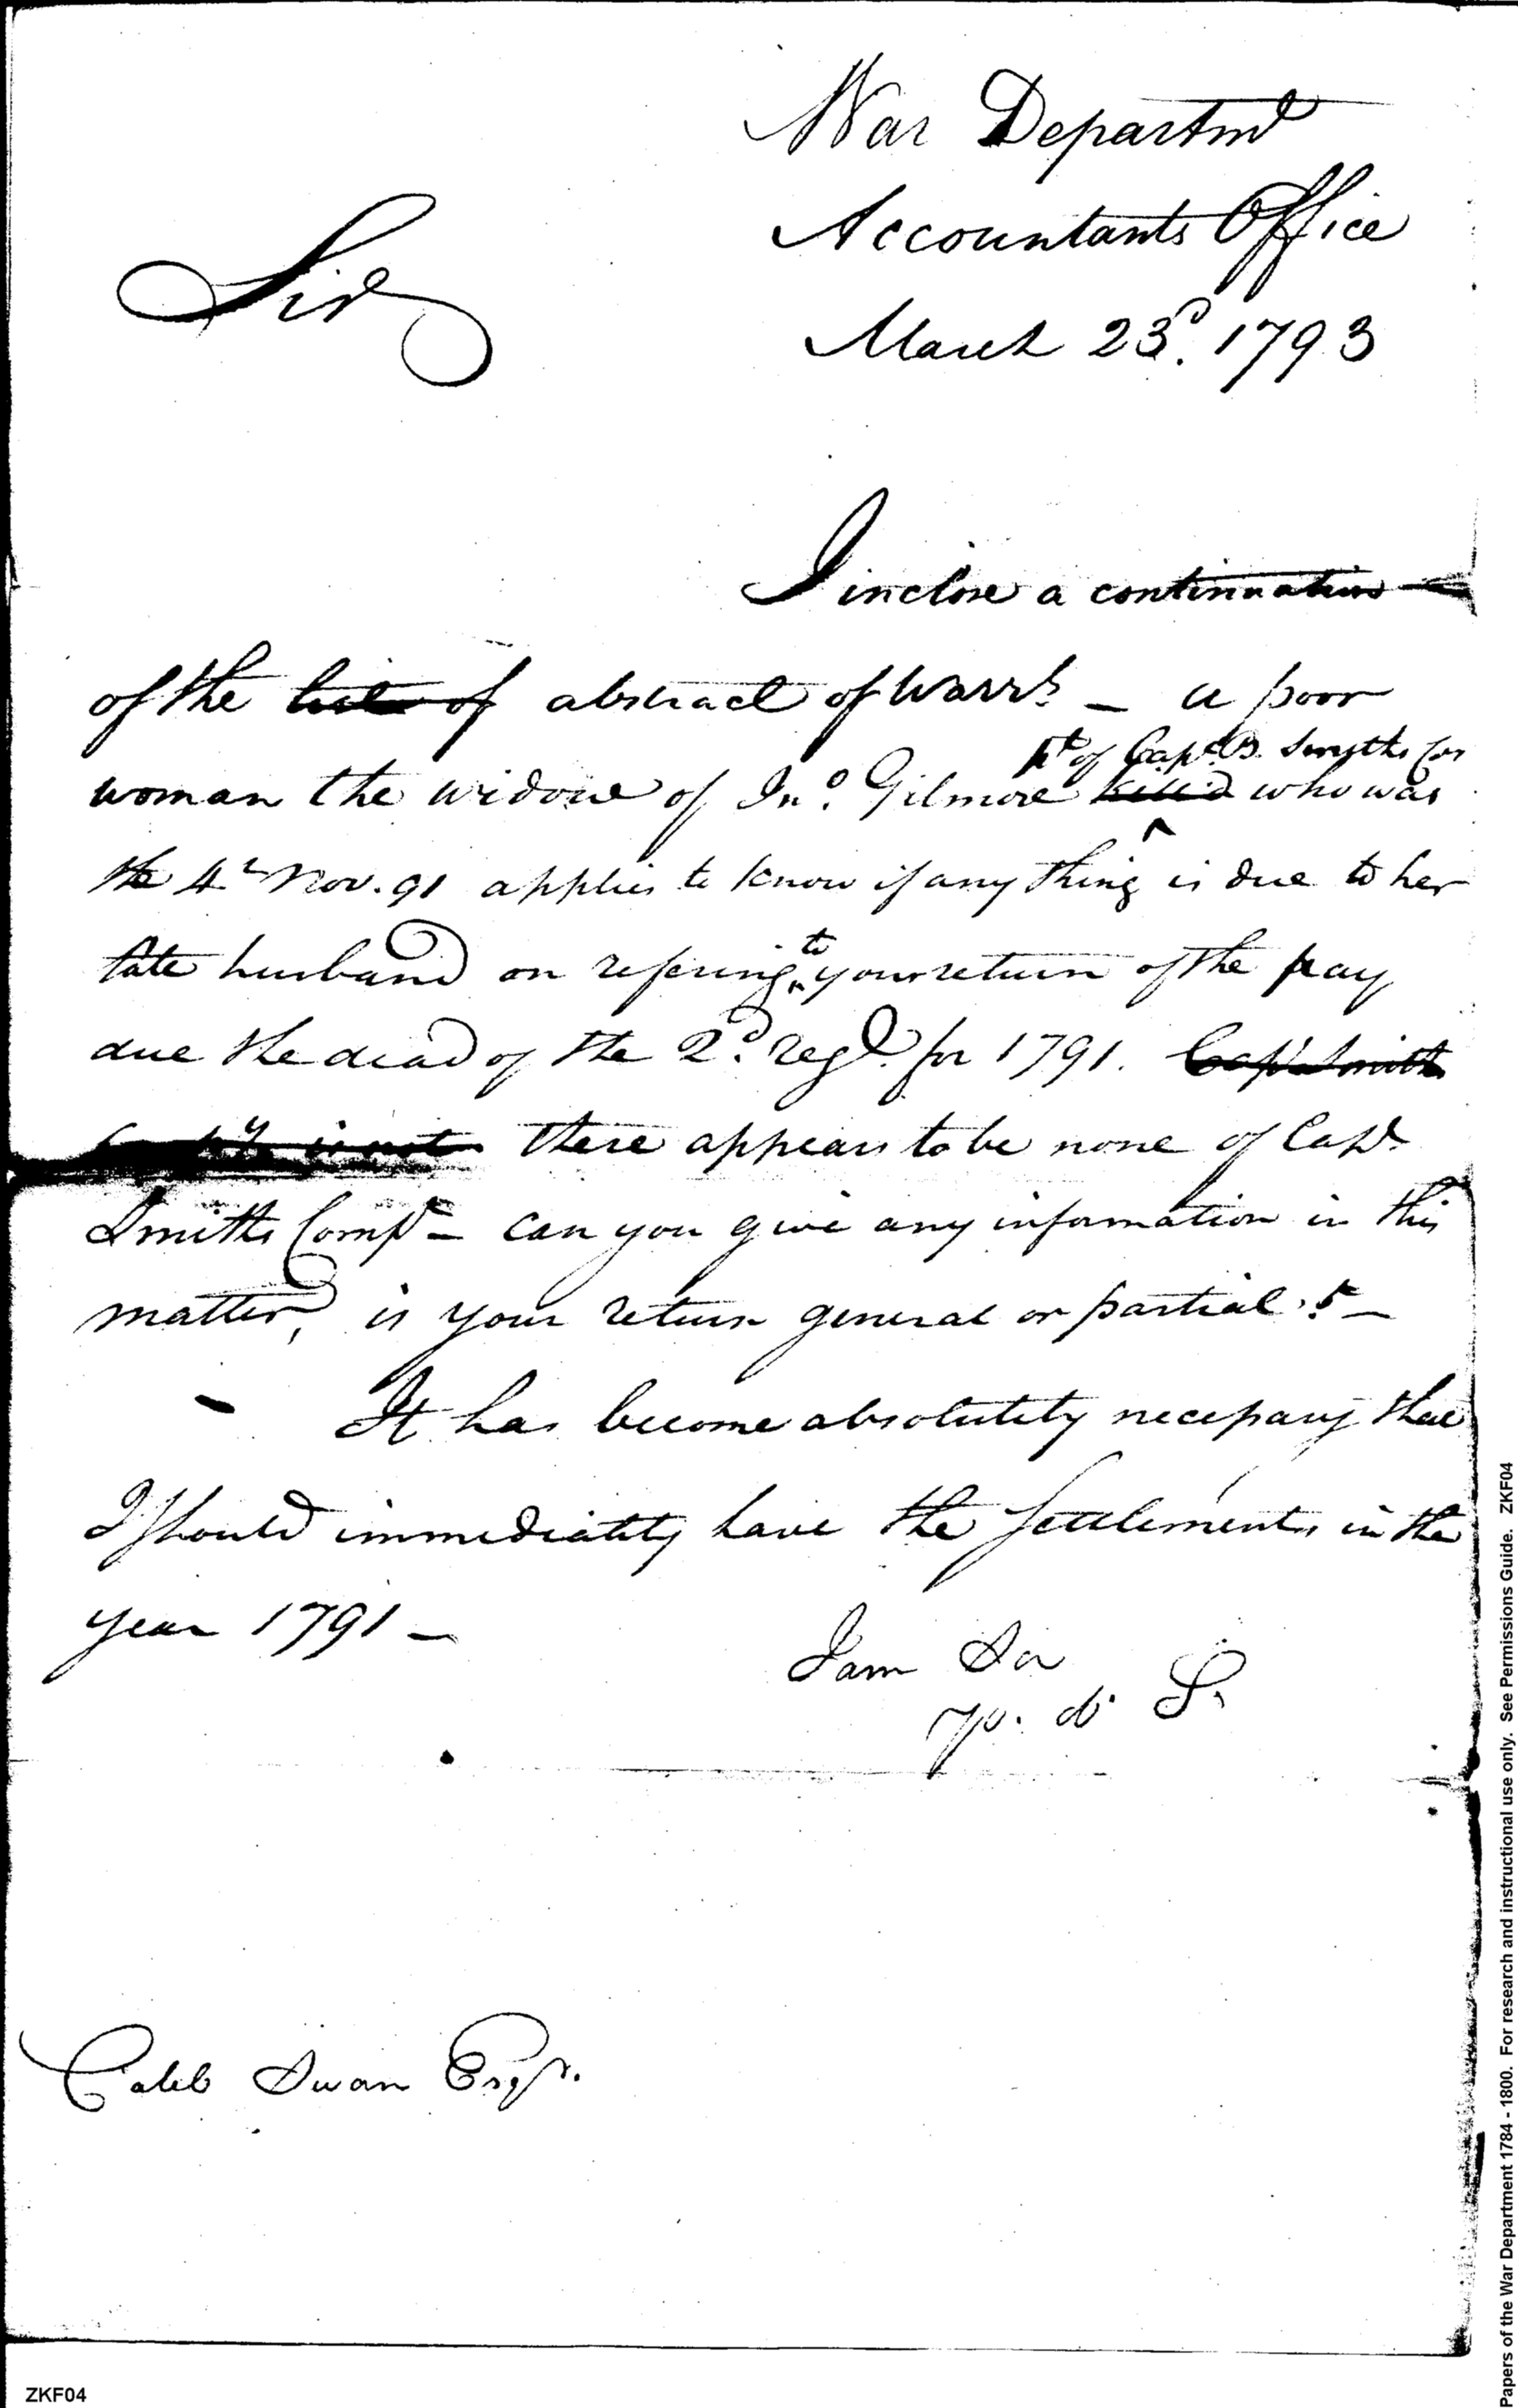 War Departmt
Accountants Office
March 23d. 1793
Sir
I inclose a continuation
of the list of abstract of Warrts — a poor
pt of Capt. B. Smyths Co
woman the widow of Jno. Gilmore killed who was
the 4h Nov. 91 applies to know if any thing is due to her
to
late husband on refering ‸ your return of the pay
due the dead of the 2d. regt. for 1791. Capt Smith
is not there appears to be none of Capt
Smiths Compy — can you give any information in this
matter, is your return general or partial? —
— It has become absolutely necessary that
I should immediately have the Settlements in the
year 1791 —
I am Sir
yo. ob S.
Caleb Swan Esqr.
ZKF04
Papers of the War Department 1784 - 1800. For research and instructional use only. See Permissions Guide. ZKF04